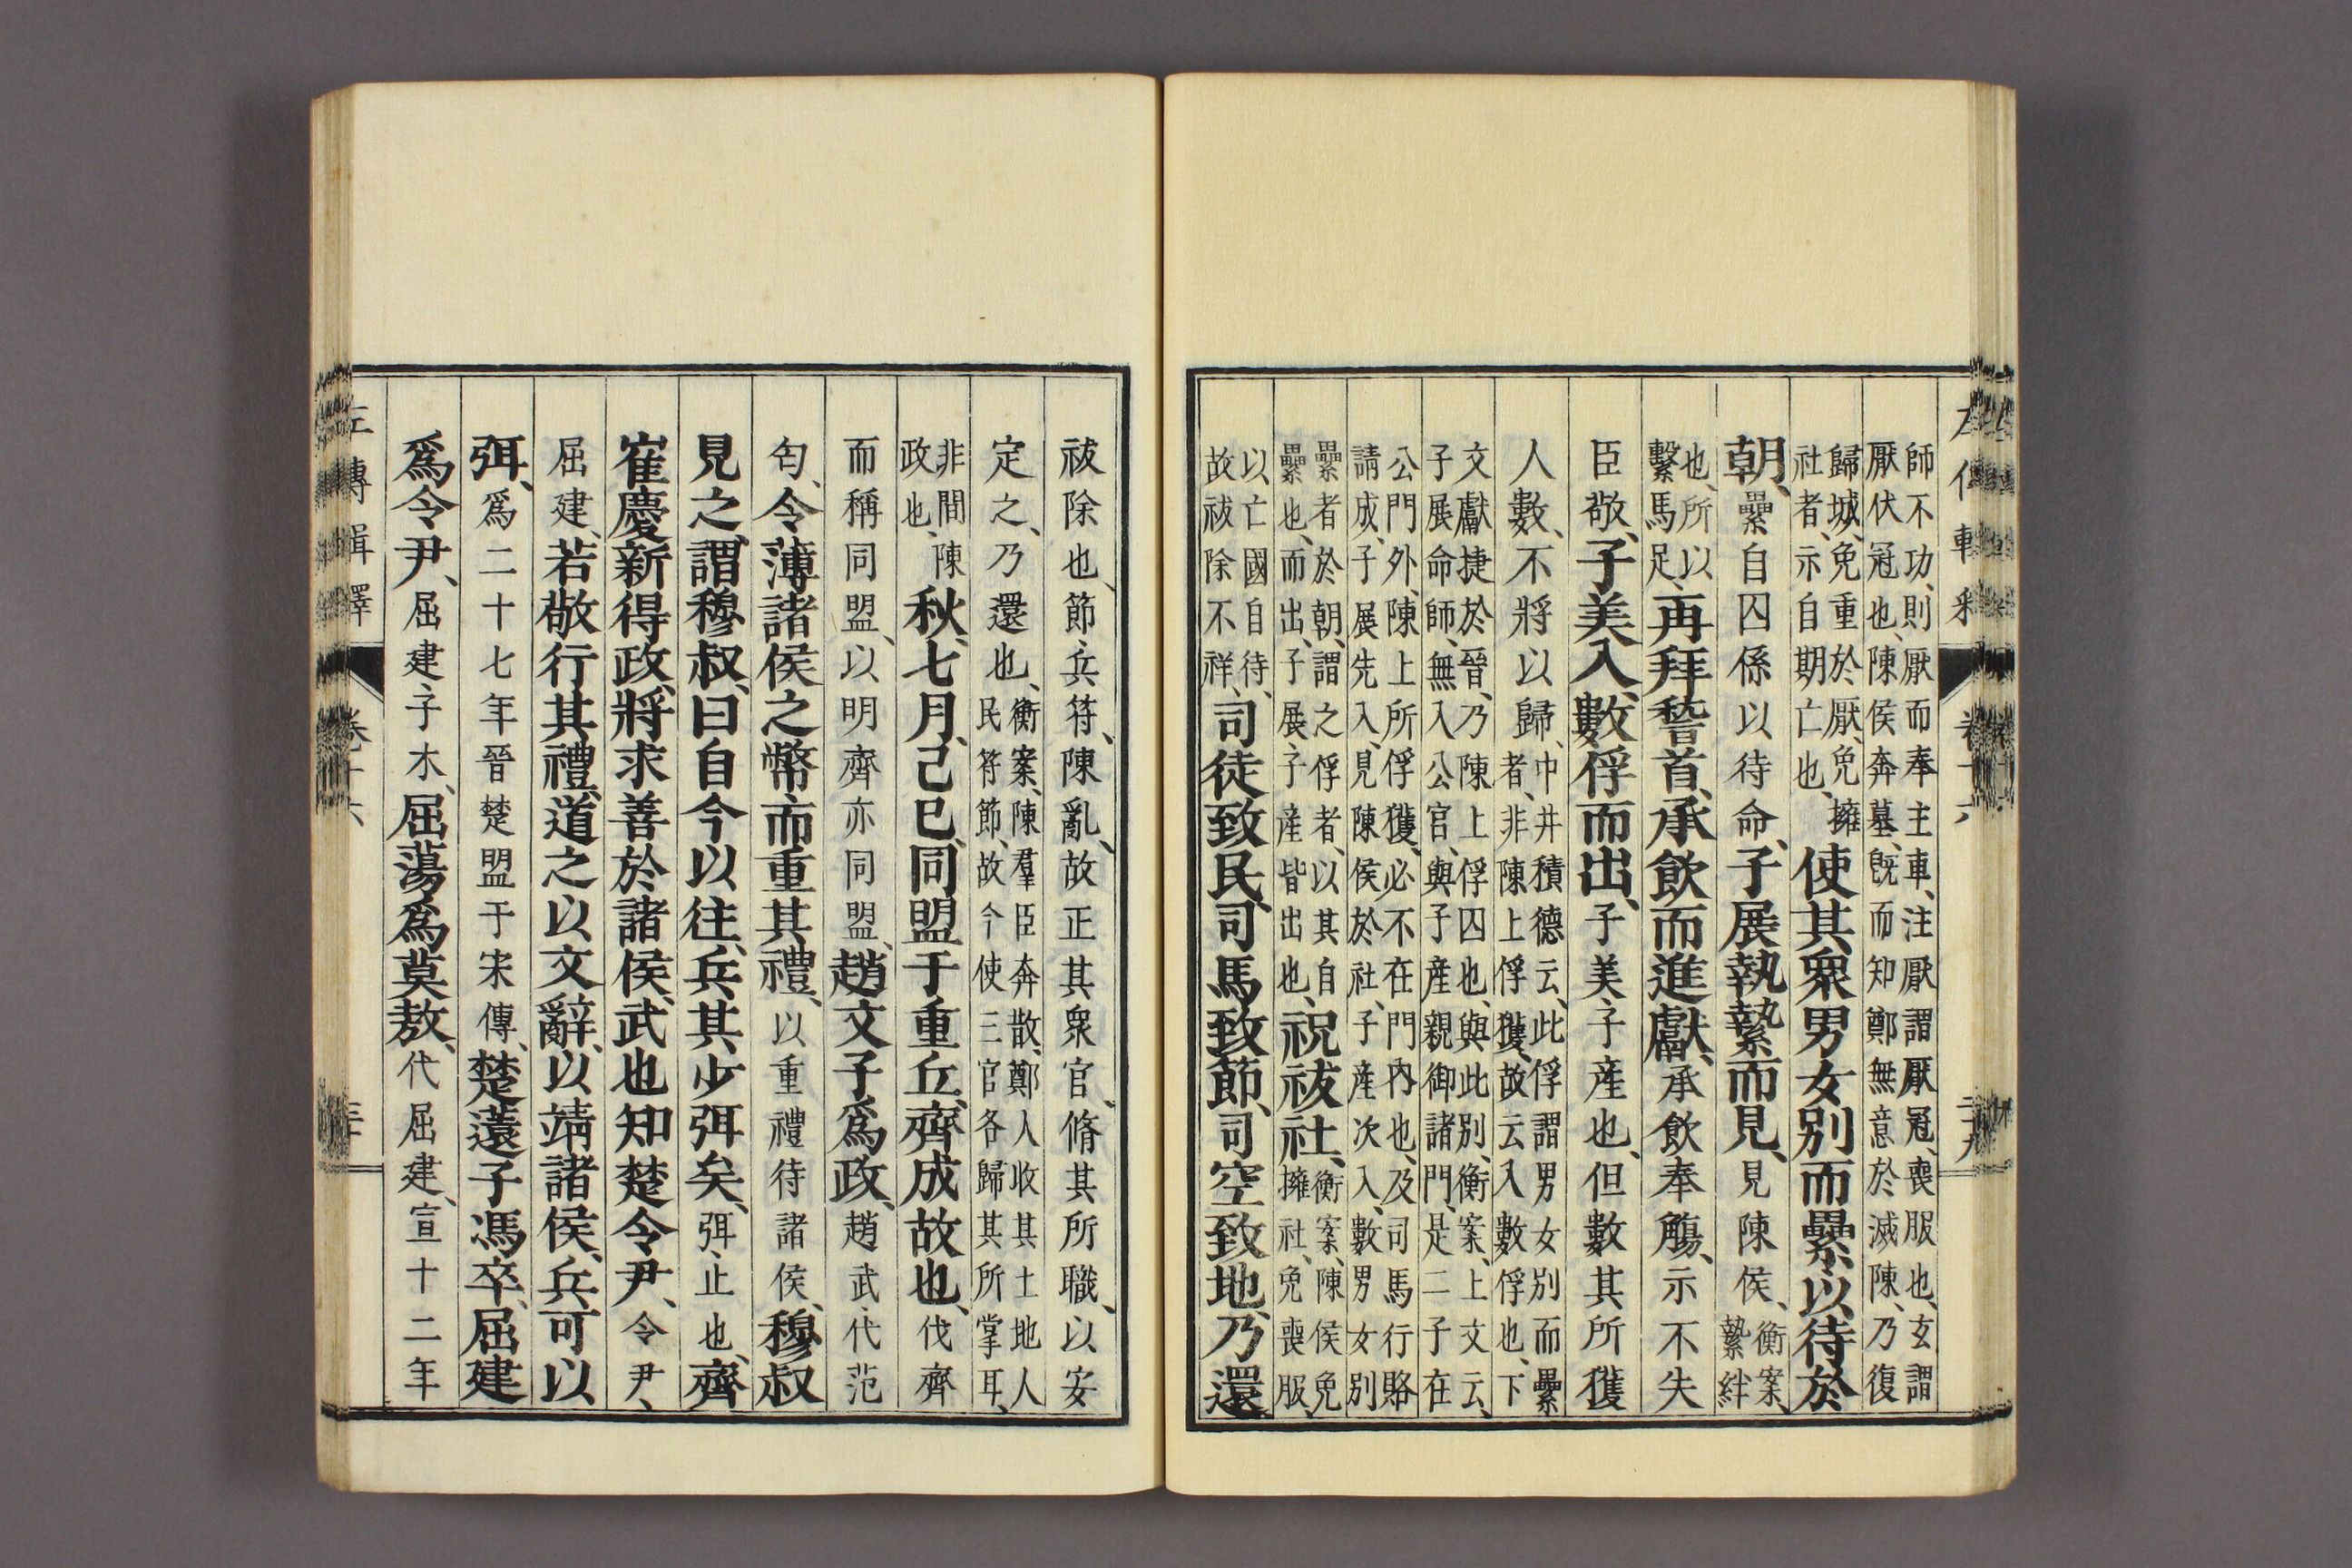 師不功、則厭而奉主車、注厭謂厭冠、喪服也、玄謂
厭伏冠也、陳侯奔墓、既而知鄭無意於滅陳、乃復
歸城、免重於厭、免擁
社者、示自期亡也、使其衆男女別而纍以待於
朝、纍自囚係以待命、子展執縶而見、見陳侯、衡案、
縶絆
也、所以
繫馬足、再拜稽首、承飲而進獻、承飲奉觴、示不失
臣敬、子美入、數俘而出、子美、子産也、但數其所獲
人數、不將以歸、中井積德云、此俘謂男女別而纍
者、非陳上俘獲、故云入數俘也、下
文獻捷於晉、乃陳上俘囚也、與此別、衡案、上文云、
子展命師、無入公宮、與子産親御諸門、是二子在
公門外、陳上所俘獲、必不在門內也、及司馬行賂
請成、子展先入、見陳侯於社、子産次入、數男女別
纍者於朝、謂之俘者、以其自
纍也、而出、子展、子産皆出也、祝祓社、衡案、陳侯免
擁社、免喪服、
以、亡國自待、
故祓除不祥、司徒致民、司馬致節、司空致地、乃還
祓除也、節、兵符、陳亂、故正其衆官、脩其所職、以安
定之、乃還也、衡案、陳羣臣奔散、鄭人收其土地人
民符節、故今使三官各歸其所掌耳、
非間陳
政也、秋、七月、己巳、同盟于重丘、齊成故也、伐齊
而稱同盟、以明齊亦同盟、趙文子爲政、趙武、代范
匄、令薄諸侯之幣、而重其禮、以重禮待諸侯、穆叔
見之、謂穆叔、曰自今以往、兵其少弭矣、弭、止也、齊
崔慶新得政、將求善於諸侯、武也知楚令尹、令尹、
屈建、若敬行其禮、道之以文辭、以靖諸侯、兵可以
弭、爲二十七年晉楚盟于宋傳、楚薳子馮卒、屈建
爲令尹、屈建、子木、屈蕩爲莫敖、代屈建、宣十二年
左傳輯釋 卷十六 三十